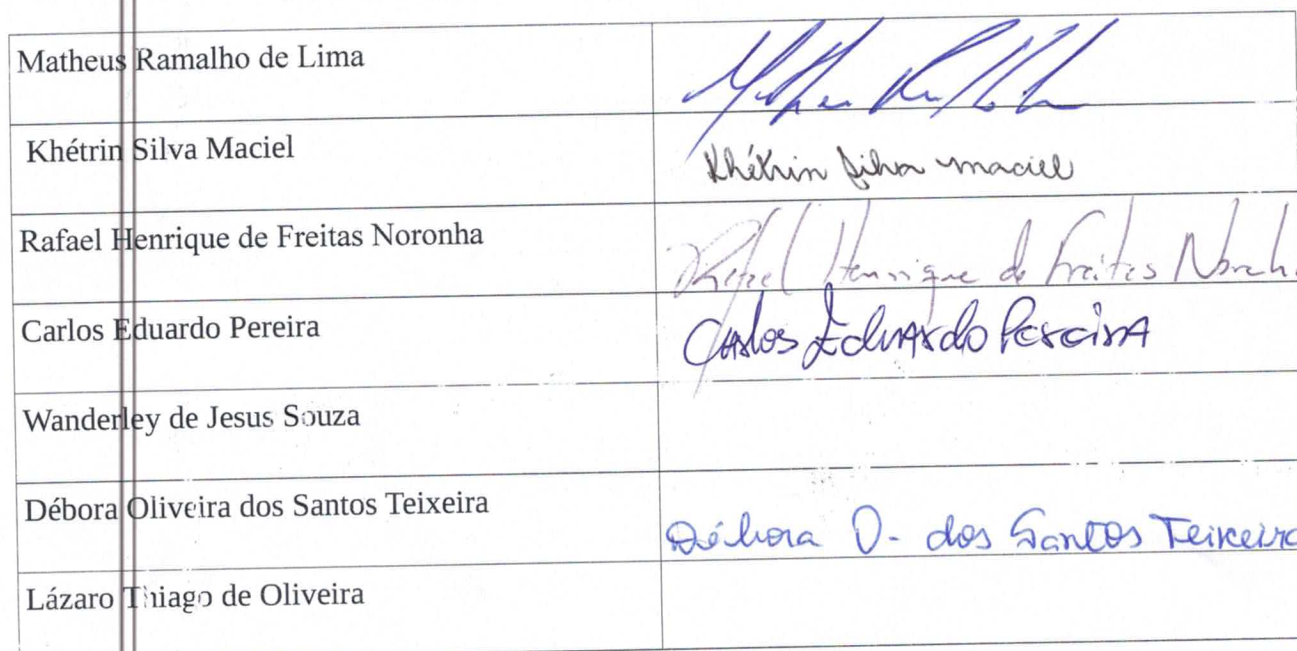 Matheus Ramalho de Lima
Khétrin Silva Maciel
Khétrin Silva Maciel
Rafael Henrique de Freitas Noronha
Rafael Henrique de Freitas Noronh
Carlos Eduardo Pereira
Carlos Eduardo Pereira
Wanderley de Jesus Souza
Débora Oliveira dos Santos Teixeira
Débora O. dos Santos Teixeira
Lázaro Thiago de Oliveira